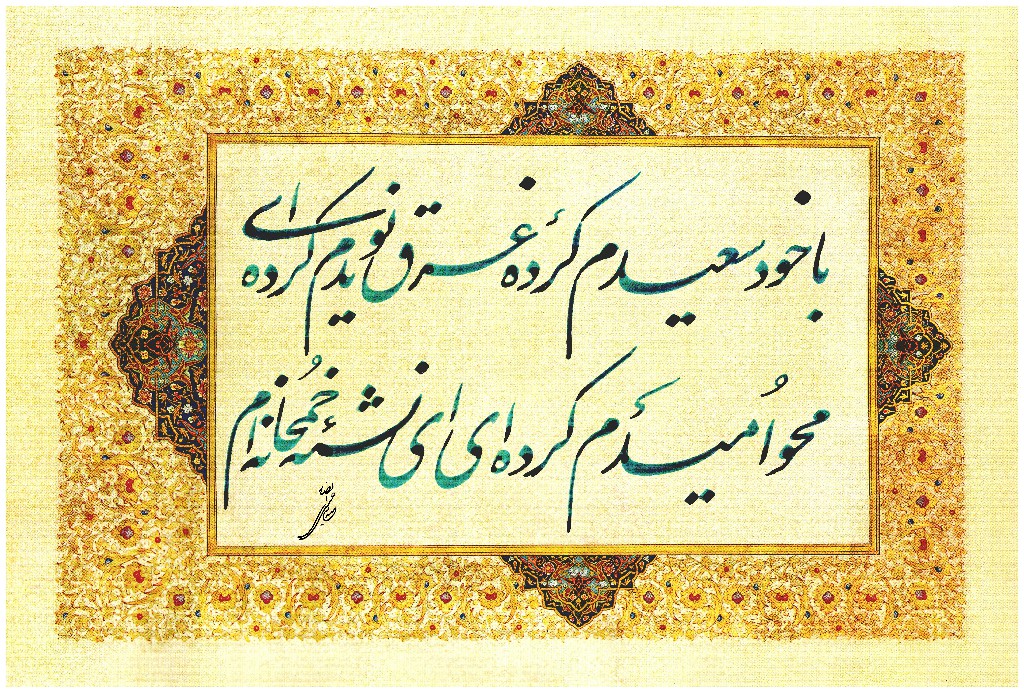 با خود سعیدم کرده غرق نویدم کرده ای
محو امیدم کرده ای ای نشئه خمخانه ام